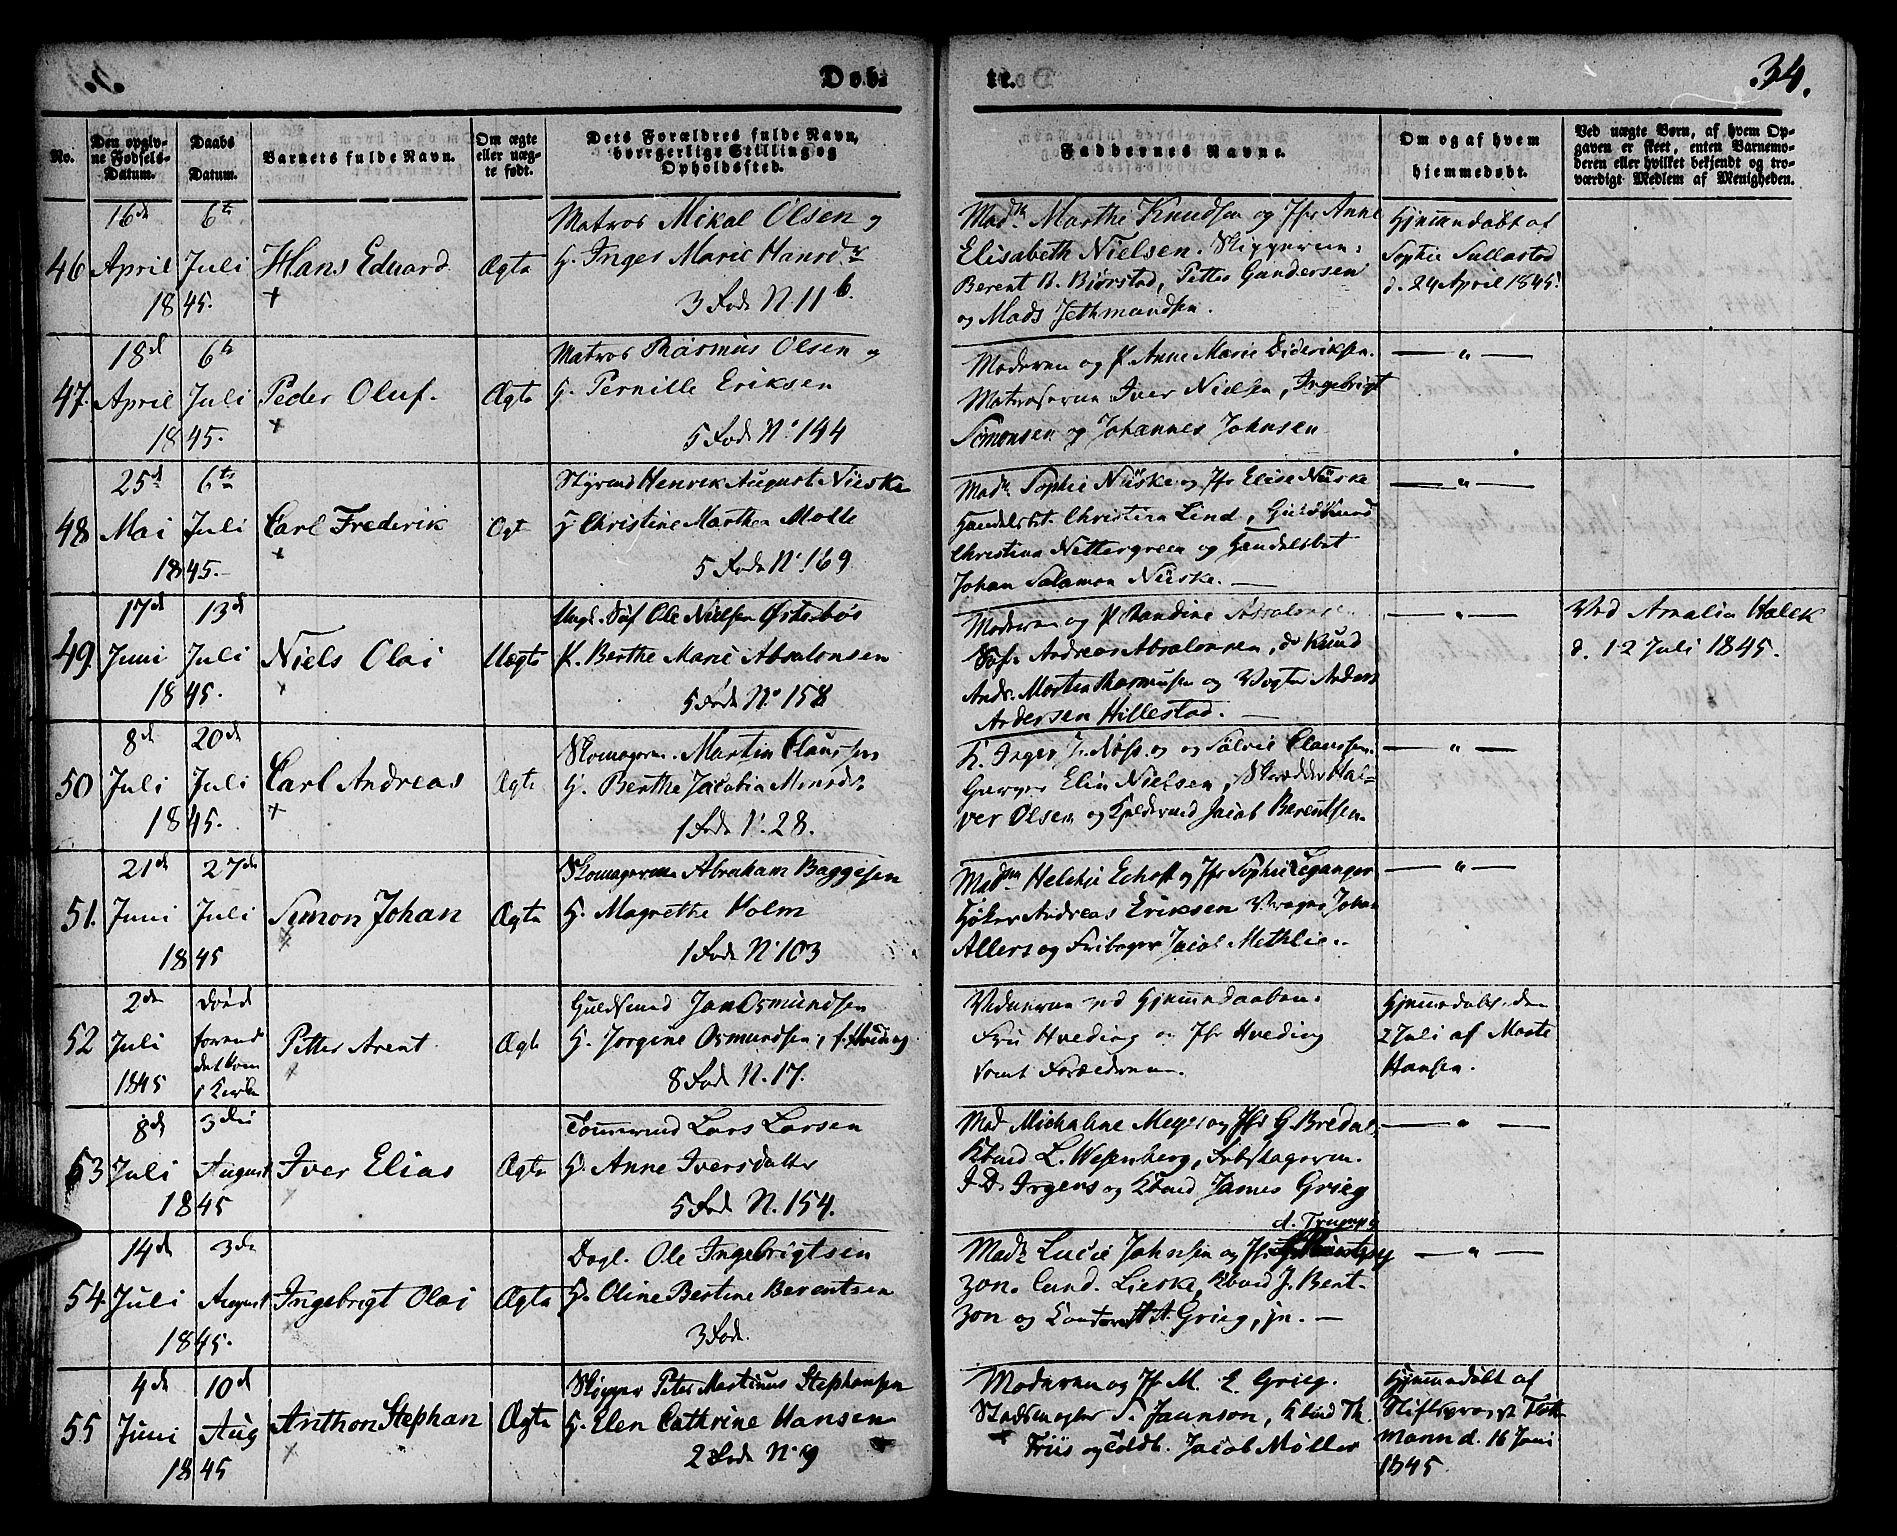 Døb-
te.
34.
No.
Den opgiv-
ne Fødsels-
Datum.
Daabs
Datum.
Barnets fulde Navn.
Om ægte
eller uæg-
te født.
Dets Forældres fulde Navn,
borgerlige Stilling og
Opholdssted.
Faddernes Navne.
Om og af hvem
hjemmedøbt.
Ved uægte Børn, af hvem Op-
gaven er skeet, enten Barnemo-
deren eller hvilket bekjendt og tro-
værdigt Medlem af Menigheden.
46 16de April 1845. 6te Juli Hans Eduard Ægte
Matros Mikal Olsen og
H. Inger Marie Hansdr
3 Rode N. 11 b.
Madm. Marthe Knudsen og Jfr Anne
Elisabeth Nielsen. Skipperne:
Berent B. Bjørstad, Petter Gundersen
og Mads Jethmundsen.
Hjemmedøbt af
Sophie
d. 24 April 1845.
47. 18d April 1845. 6te Juli Peder Oluf. Ægte
Matros Rasmus Olsen og
H. Pernille Eriksen
5 Rode N. 144
Moderen og P. Anne Marie Dideriksen.
Matroserne Iver Nielsen, Ingebrigt
Simonsen og Johannes Johnsen
— " —
48 25d Mai 1845.- 6te Juli Carl Frederik Ægt
Styrmd Henrik August Niiske
H Christine Marthea Molle
5 Rode N. 169
Madm. Sophie Niiske og Jfr Elise Niiske
Handelsbet. Christian Lind, Guldsmed
Christian Nettergreen og Handelsbet
Johan Salamon Niiske. —
— " —
49. 17d Juni 1845. 13d Juli Niels Olai Uægte
Ungk. Søf Ole Nielsen Østerbøs
P. Berthe Marie Absalonsen
5 Rode N. 158
Moderen og P Nandine Absalonsen
Søfr Andreas Absalonsen, do Knud
Andr. Martin Rasmusen og Vogter Anders
Andersen Hillestad. —
— " —
Ved Amalia Halck
d. 12 Juli 1845.
50 8de Juli 1845. 20de Juli Carl Andreas Ægte
Skomagerm. Martin Claussen
H. Berthe Jacobia Monsdtr
1 Rode N. 28.
K. Inger og Sølvie Claussen.
Elin Nielsen, Skrædder Hal-
ver Olsen og Kjeldermd Jacob Berentsen.
— " —
51. 21de Juni 1845 27de Juli Simon Johan Ægte
Skomagerm Abraham Baggesen
H. Magrethe Holm
1 Rode N. 103
Madm Helchie Echoff og Jfr Sophie Leganger
Høker Andreas Eriksen Vrager Johan
Allers og Fribager Jacob Methlie.
— " —
52 2de Juli 1845 Døde forend det kom i Kirke Petter Arent Ægte
Guldsmed Jan Osmundsen
H. Jorgine Osmundsen, f. Hveding
8 Rode N. 17.
Vidnerne ved Hjemmedaaben:
Fru Hveding og Jfr Hveding
samt Forældrerne.
Hjemmedøbt den
2 Juli af Marte
Hansen.
53 8de Juli 1845 3die August Iver Elias Ægte
Tømmermd Lars Larsen
H. Anne Iversdatter
5 Rode N. 154.
Mad Michaline Meyer og Jfr G. Bredal,
Kbmd L. Wesenberg, Rebslagerm.
I D. Irgens og Kbmd James Grieg
— " —
54 14de Juli 1845. 3de August Ingebrigt Olai Ægte
Dagl. Ole Ingebrigtsen
H. Oline Bertine Berentsen
3 Rode.
Madm Lucie Johnsen og Jfr
zon. Cand. Lieske, Kbmd J. Bent-
zon og Grieg, jn. —
— " —
55 4de Juni 1845 10de Aug Anthon Stephan Ægte
Skipper Peter Martinus Stephansen
H. Elen Cathrine Hansen
2 Rode N. 9
Moderen og Jfr M. E. Grieg.
Stadsmægler S. Jaunson, Kbmd Th.
Friis og Toldb. Jacob Møller
Hjemmedøbt af
Stiftsprovst
mann d. 16 Juni
1845